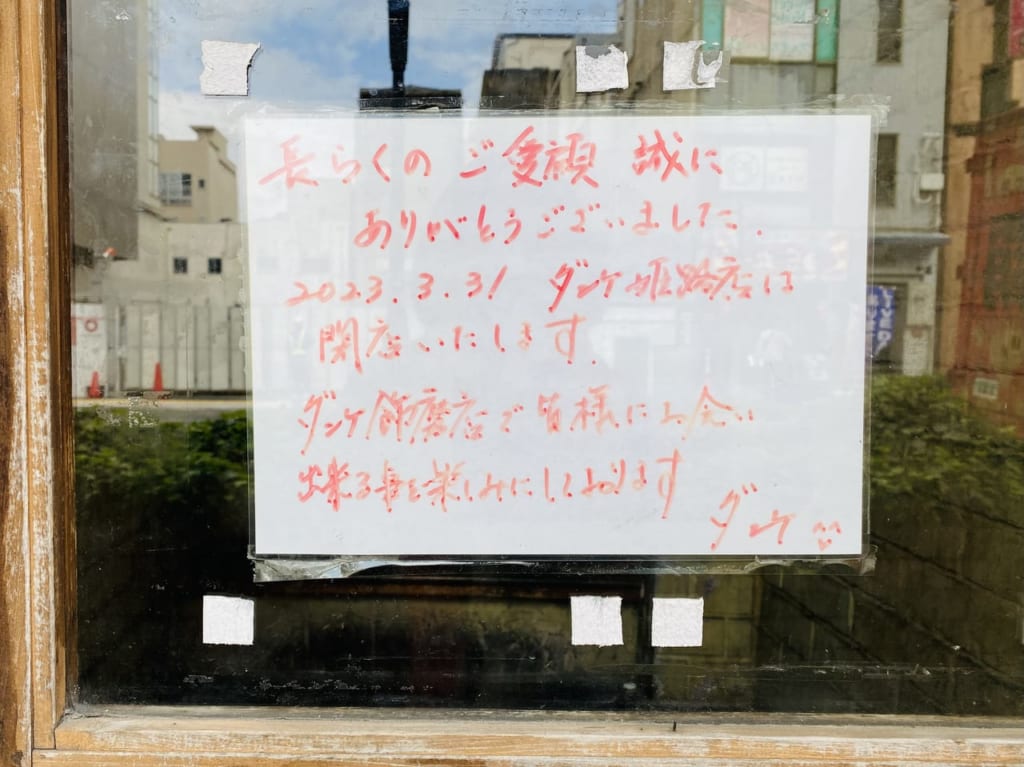 長らくの ご愛顧 誠に
ありがとうございました.
2023.3.31 ダンケ姫路店は
閉店いたします.
ダンケ飾磨店で皆様にお会い
出来る事を楽しみにしております
ダンケ